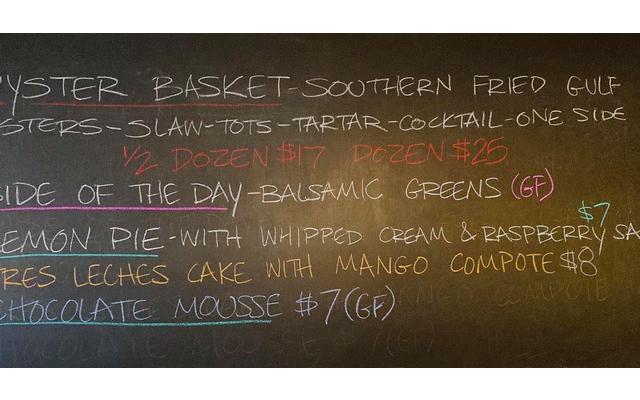 YSTER BASKET-SOUTHERN FRIED GULF
STERS-SLAW-TOTS-TARTAR-COCKTAIL-ONE SIDE
1/2 DOZEN $17 DOZEN $25
SIDE OF THE DAY-BALSAMIC GREENS (GF)
$7
EMON PIE-WITH WHIPPED CREAM & RASPBERRY SA
RES LECHES CAKE WITH MANGO COMPOTE $8
CHOCOLATE MOUSSE $7 (GF)